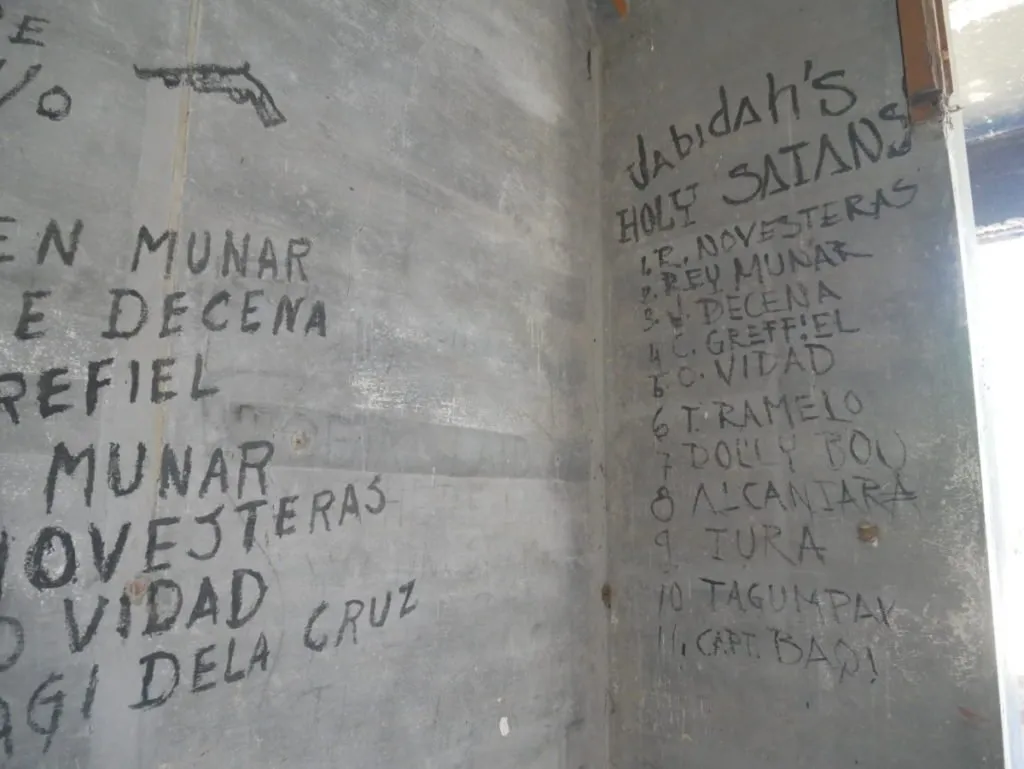 E
%
EN MUNAR
E DECENA
REFIEL
MUNAR
NOVESTERAS
O VIDAD
AGI DELA CRUZ
Jabidah's
HOLY SATANS
1. R. NOVESTERAS
2. REY MUNAR
3. V. DECENA
4 C. GREFFIEL
5 O. VIDAD
6 T. RAMELO
7 DOLLY BOY
8 ALCANTARA
9 TURA
10 TAGUMPAY
11. CAPT. BAQI